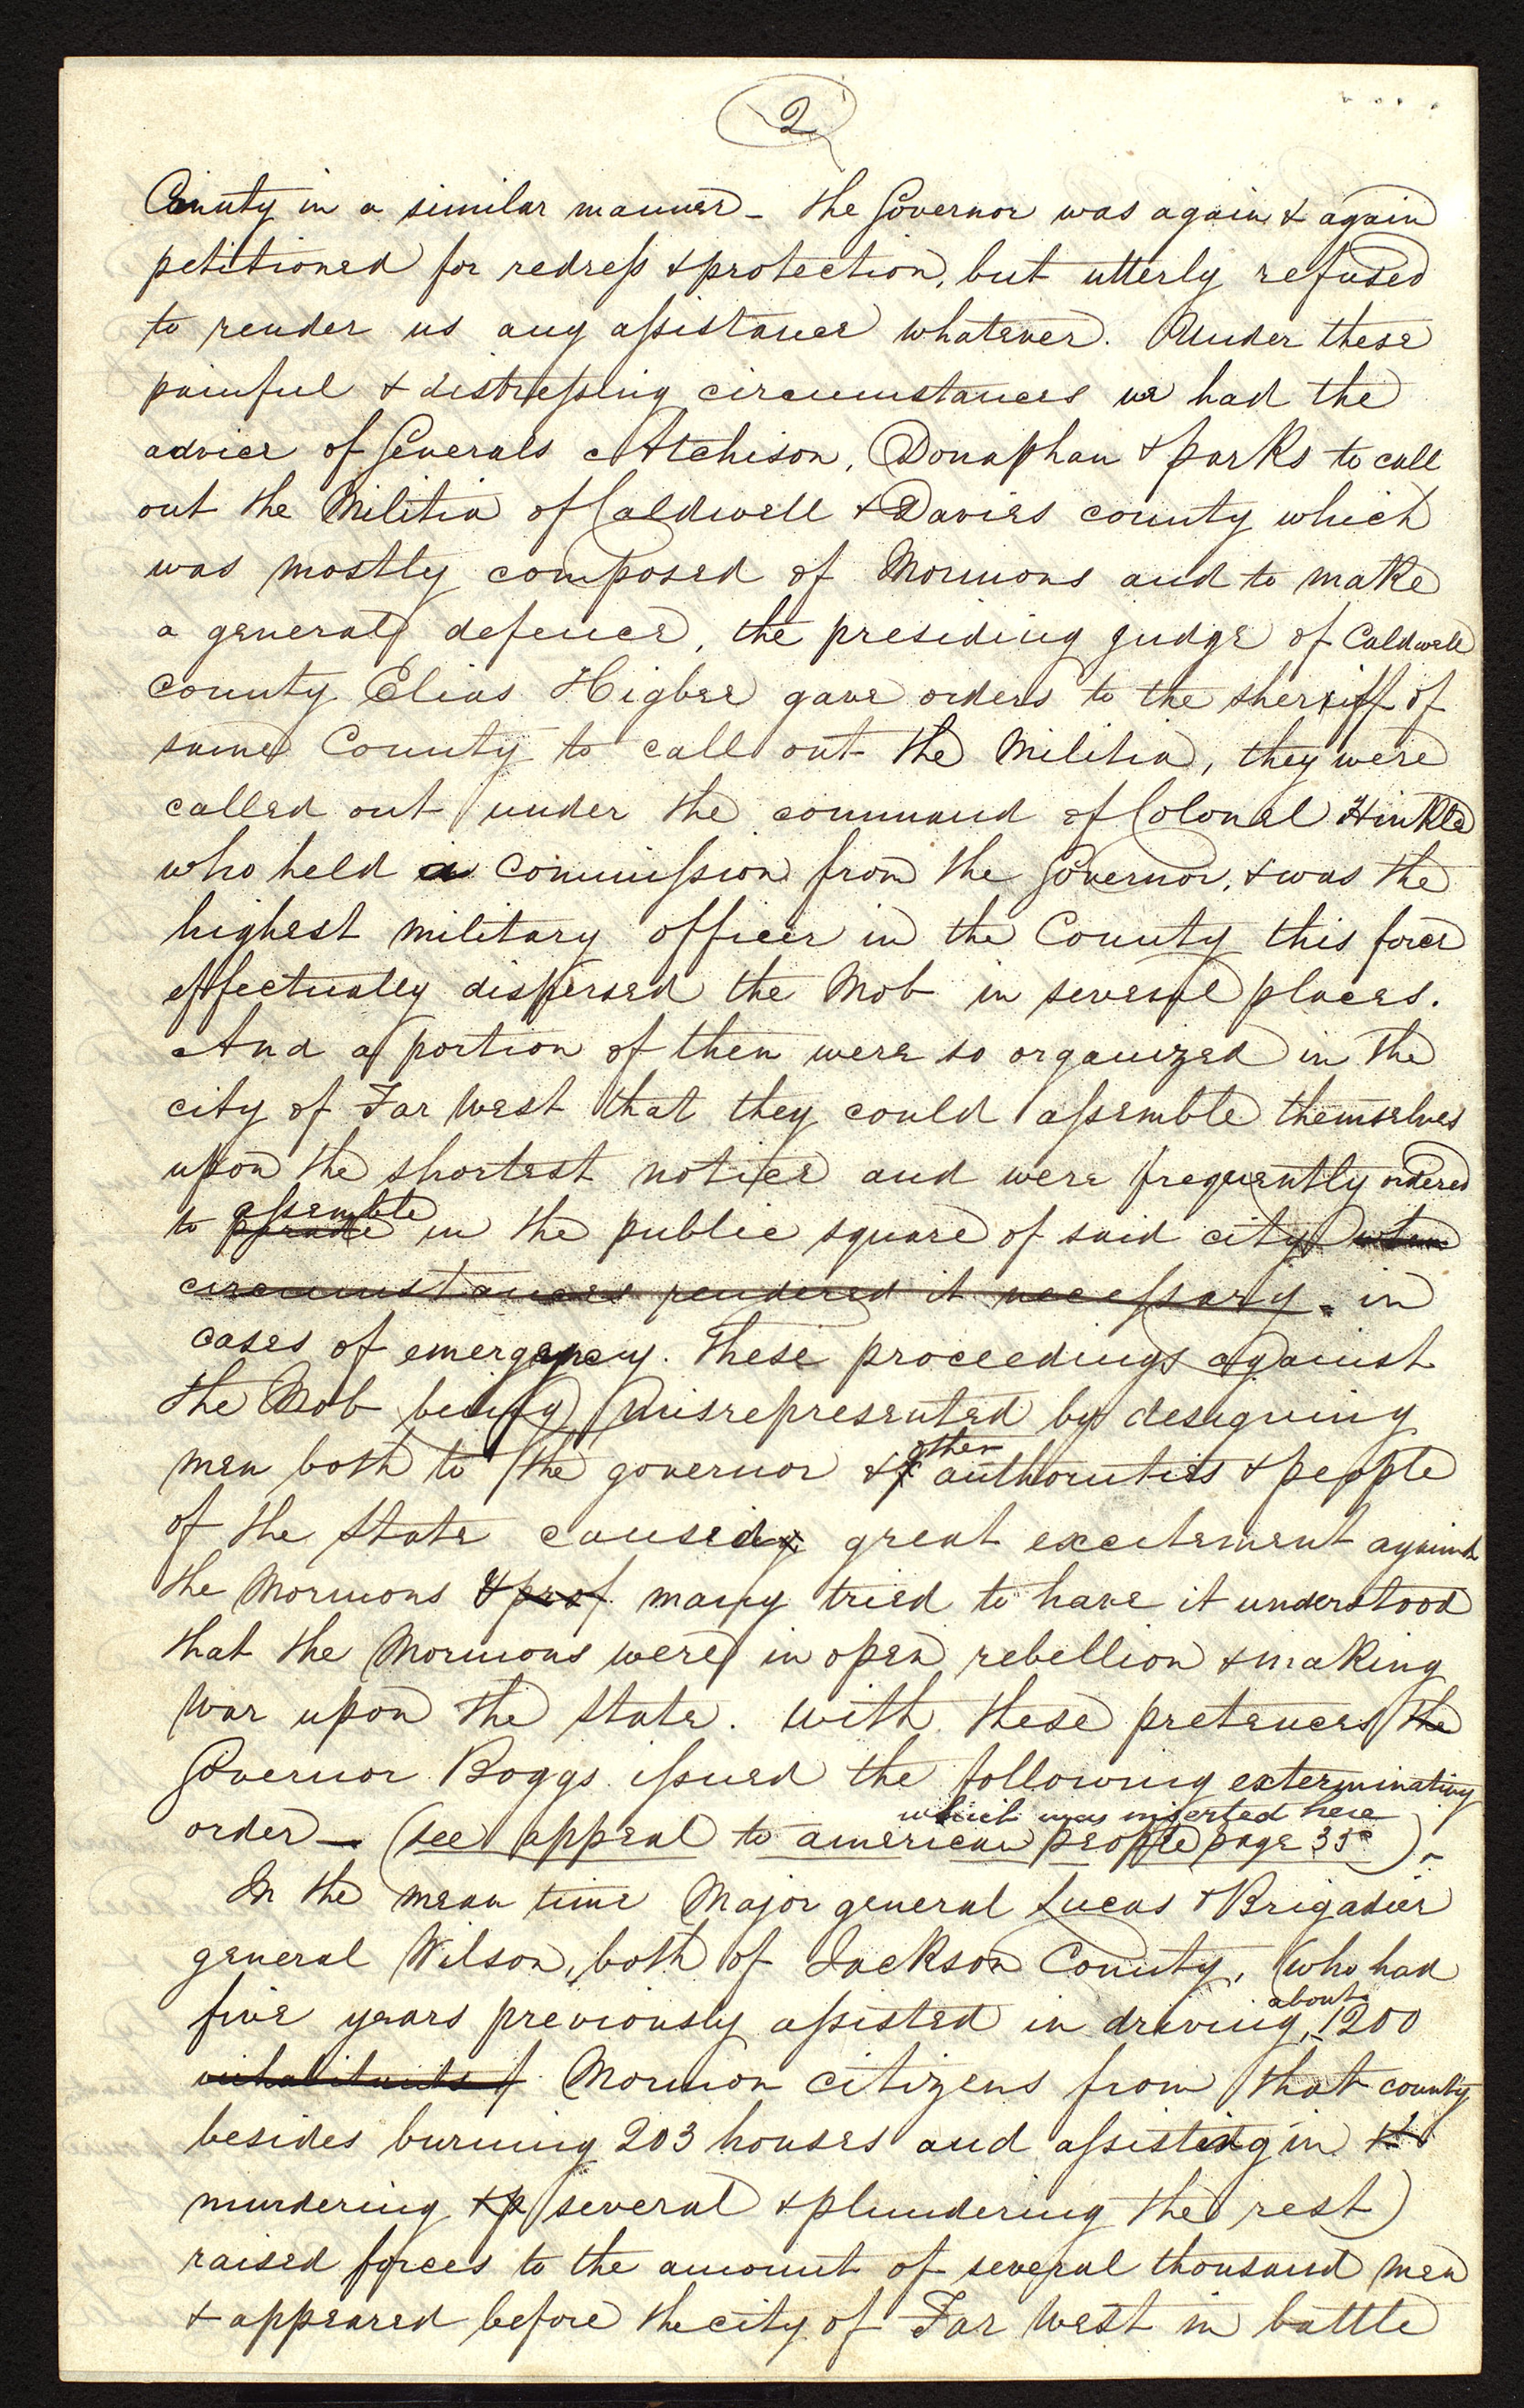 2
County in a similar manner – the Governor was again & again
petitioned for redress & protection, but utterly refused
to render us any assistance whatever. Under these
painful & distressing circumstances we had the
advice of Generals Atchison, Donaphan & parks to call
out the Militia of Caldwell & Davies county which
was mostly composed of Mormons and to make
a general defence, the presiding judge of Caldwell
county Elias Higbee gave orders to the sherriff of
same County to call out the Militia, they were
called out under the command of Colonel Hinkle
who held a commission from the Governor, & was the
highest military officer in the County this force
effectually dispersed the Mob in several places.
And a portion of then were so organized in the
city of Far West that they could assemble themselves
upon the shortest notice and were frequently ordered
assemble
to parade in the public square of said city when
circumstances rendered it necessary. in
cases of emergency. These proceedings against
the Mob being misrepresented by designing
other
men both to the governor & authorities & people
of the State caused great excitement against
the Mormons & many tried to have it understood
that the Mormons were in open rebellion & making
War upon the State. With these pretences the
Governor Boggs issued the following exterminating
which was inserted here
order – (see appeal to american people page 35).
In the mean time Major general Lucas & Brigadier
general Wilson, both of Jackson County, (who had
about
five years previously assisted in driving 1200
inhabitants of Mormon citizens from that county
besides burning 203 houses and assisting in
murdering &p several & plundering the rest)
raised forces to the amount of several thousand men
& appeared before the city of Far West in battle